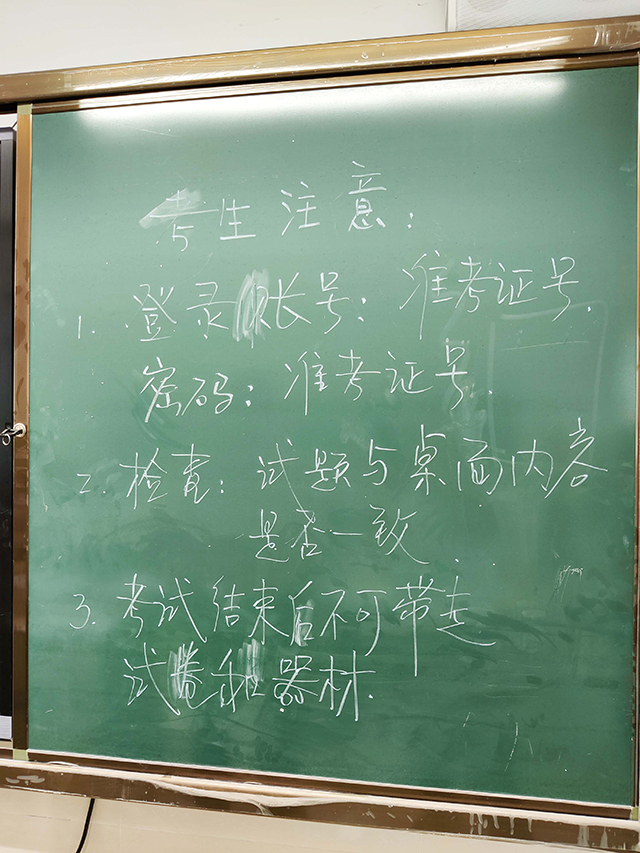 考生注意：
1. 登录账号：准考证号.
密码：准考证号.
2. 检查：试题与桌面内容
是否一致.
3. 考试结束后不可带走
试卷和器材.